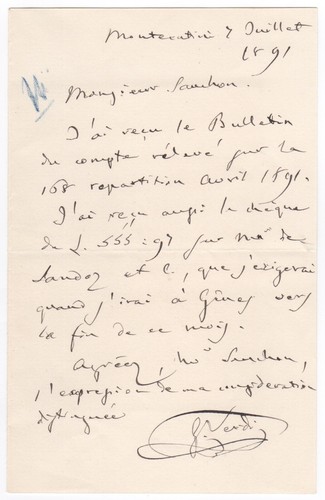 Montecatini 7 Juillet
1891
Monsieur Sauchon.
J'ai reçu le Bulletin
du compte rélevé sur la
168 repartition Avril 1891.
J'ai reçu aussi le cheque
de L. 555:97 sur Mr de
Sandoz et C, que j'exigerai
quand j'irai à Gênes vers
la fin de ce mois.
Agréez, Mr Sauchon,
l'expression de ma consideration
distinguée
G. Verdi